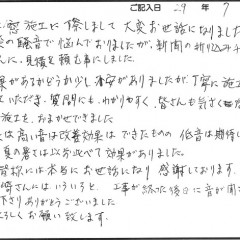 ご記入日 29年 7
窓施工に際しまして大変お世話になりました
の騒音で悩んでおりましたが、新聞の折り込みチ
さんに、見積を頼む事にしました。
果があるかどうか少し不安がありましたが、丁寧に施工
ていただき、質問にも、わかりやすく、皆さんも気さく
施工を、おまかせできました
は高い音は改善効果はできたものの低音は期待
夏の暑さは以前と比べて効果がありました。
皆様には本当にお世話になり感謝しております。
崎さんにはいろいろと、工事が終わった後日に音が
下さりありがとうございました
よろしくお願い致します。